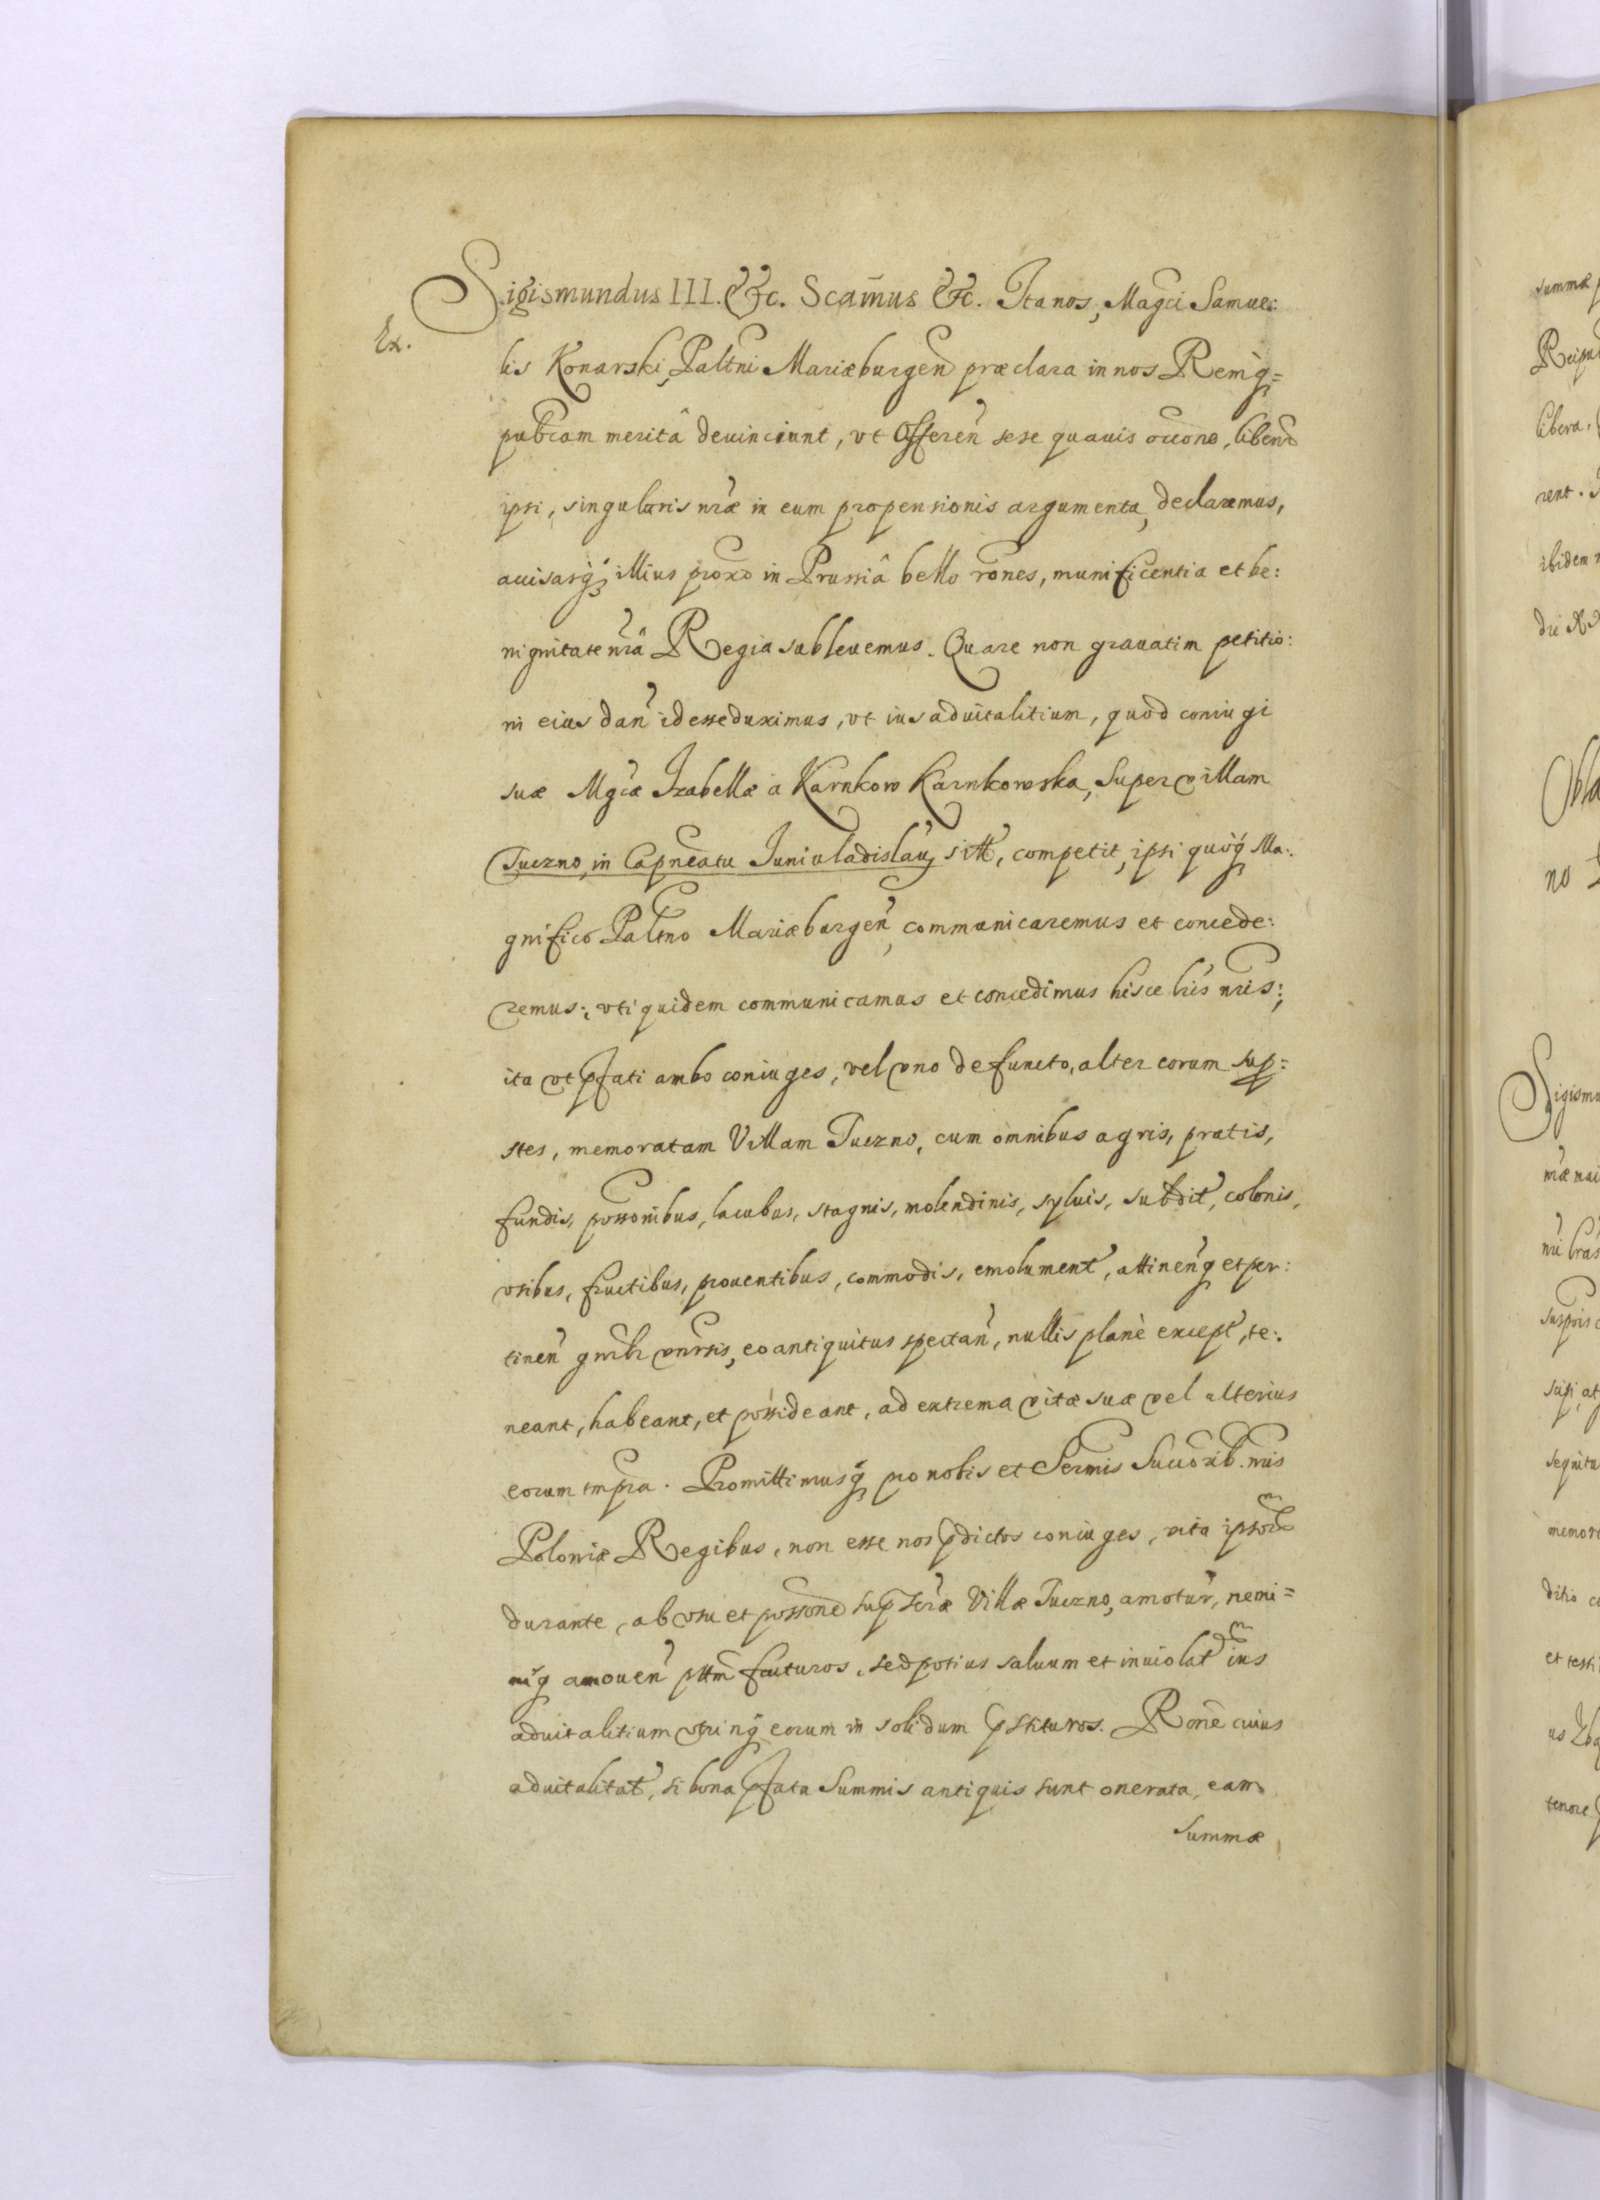 Sigismundus III. &c. Scamus &c. Ita nos, Magci Samue:
Ex.
lis Konarski, Paltni Mariæburgen præclara in nos Remq=
publcam meritâ deuinciunt, vt Offeren sese quauis occone, libenr
ipsi, singularis nræ in eum propensionis argumenta, declaremus,
auisasq illius proxo in Prussiâ bello rones, munificentia et be:
nignitate nrâ Regia subleuemus. Quare non grauatim petitio:
ni eius dan id esse duximus, vt ius aduitalitium, quod coniugi
suæ Mgcæ Izabellæ a Karnkow Karnkowska, super villam
Tuczno, in Capneatu Iuniuladislau sitt, competit, ipsi quoq Ma:
gnifico Paltno Mariæburgen, communicaremus et concede:
remus; vti quidem communicamus et concedimus hisce lris nris;
ita vt pfati ambo coniuges, vel vno defuncto, alter eorum sup:
stes, memoratam Villam Tuczno, cum omnibus agris, pratis,
fundis, possonibus, lacubus, stagnis, molendinis, syluis, subdit, colonis,
vsibus, fructibus, prouentibus, commodis, emolument, attinenq et per:
tinen gnrlr vnrsis, eo antiquitus spectan, nullis planè except, te:
neant, habeant, et possideant, ad extrema vitæ suæ vel alterius
eorum tmpra. Promittimusq pro nobis et Sermis Succorib. nris
Poloniæ Regibus, non esse nos pdictos coniuges, vita ipsor
durante, ab vsu et possone sup scræ Villæ Tuczno, amotur, nemi=
niq amouen pttm facturos, sed potius saluum et inuiolat ius
aduitalitium vtriq eorum in solidum pstituros. Rone cuius
aduitalitat, si bona pfata Summis antiquis sunt onerata, eam
summæ